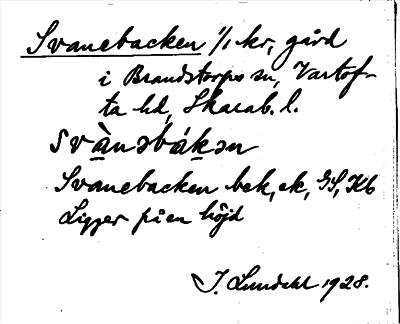 Svanebacken 1/1 kr, gård
i Brandstorps sn, Vartof-
ta hd, Skarab. l.
svànəbákən
Svanebacken bek, ek, GS, Kb
Ligger på en höjd
J. Lundahl 1928.